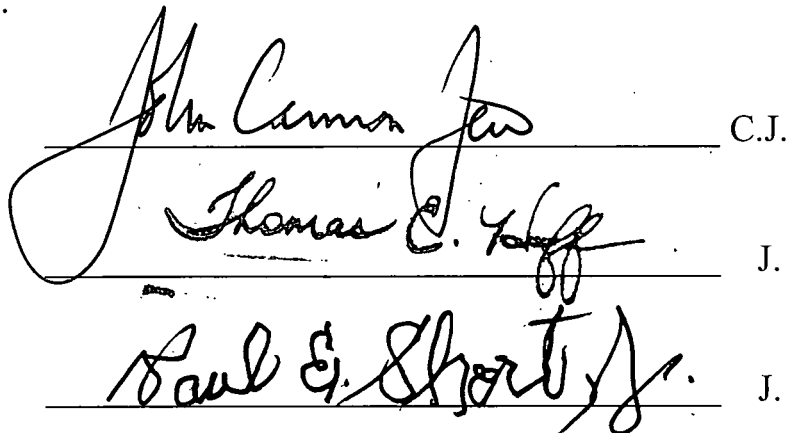 John Cannon Few C.J.
Thomas E. Huff J.
Paul E. Short, Jr. J.